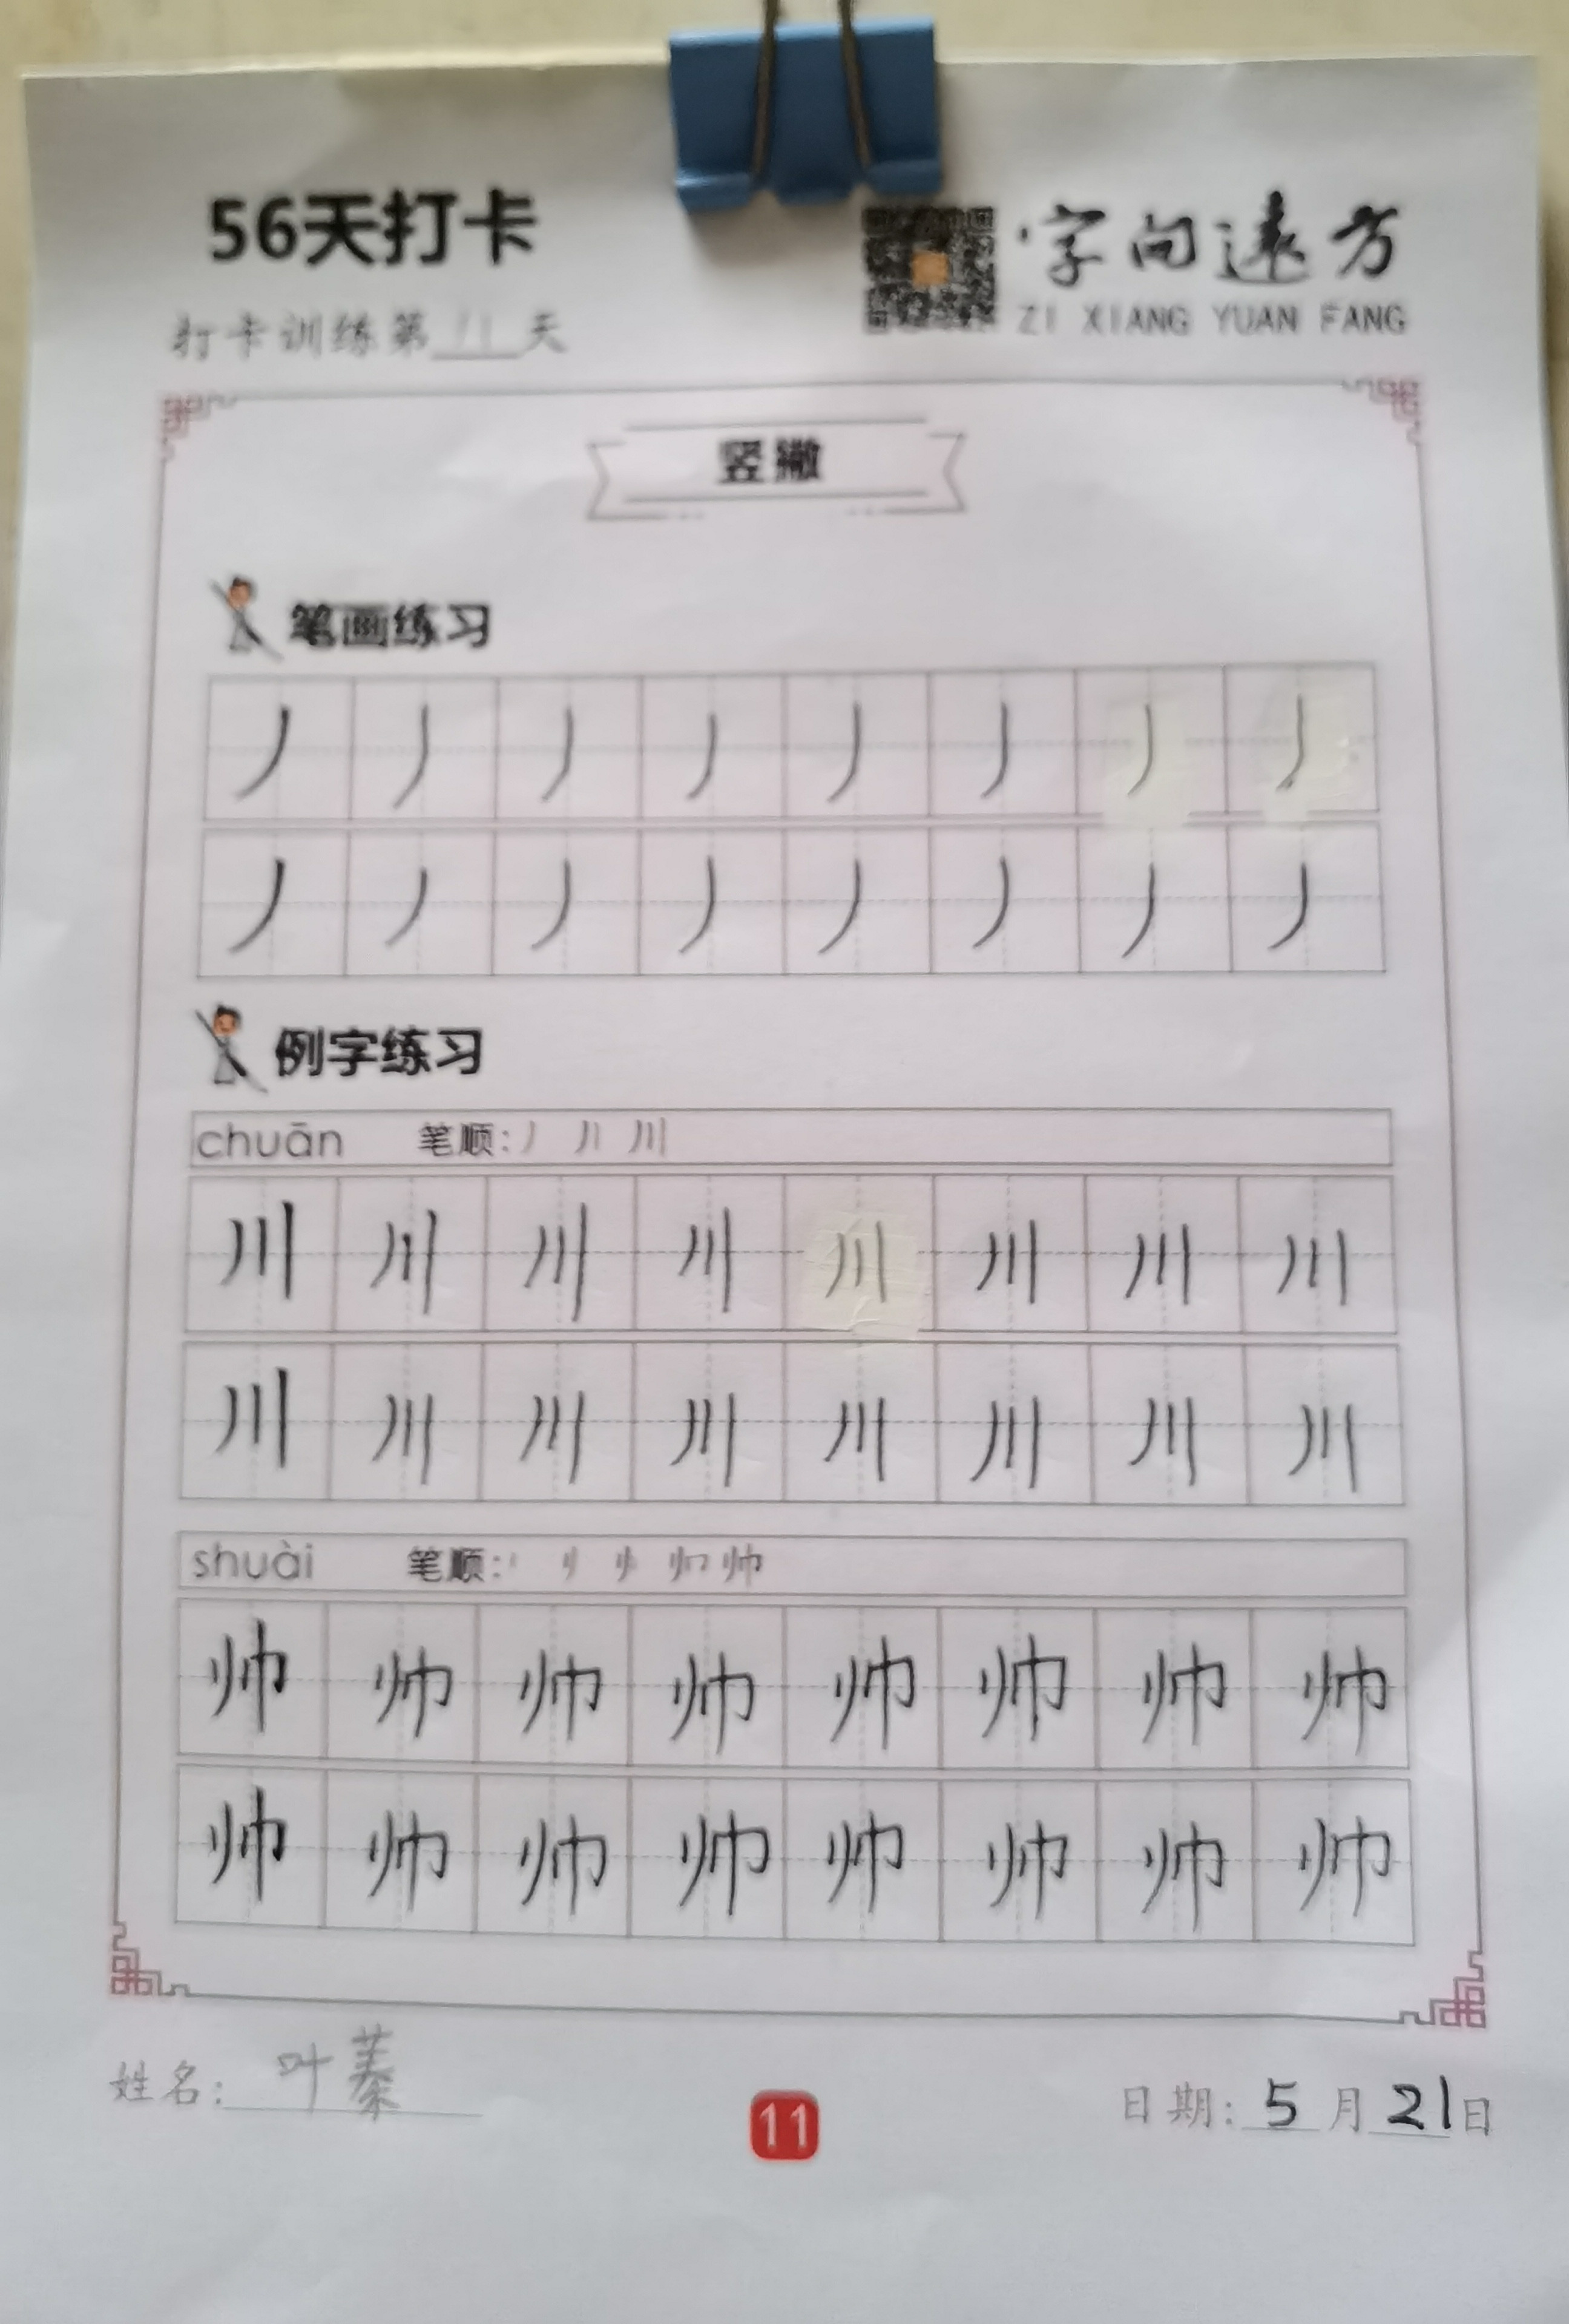 56天打卡
字向远方
打卡训练第11天
ZI XIANG YUAN FANG
竖撇
笔画练习
丿丿丿丿丿丿丿丿
丿丿丿丿丿丿丿丿
例字练习
chuān 笔顺: 丿 丿丨 川
川川川川川川川川
川川川川川川川川
shuài 笔顺: 帅
帅帅帅帅帅帅帅帅
帅帅帅帅帅帅帅帅
姓名: 叶蓁
11
日期: 5月21日